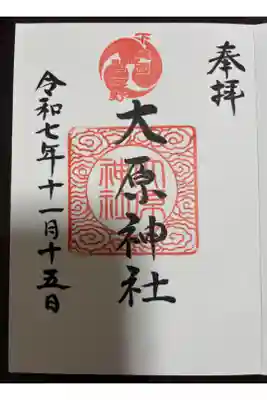 奉拝
大原神社
令和七年十一月十五日